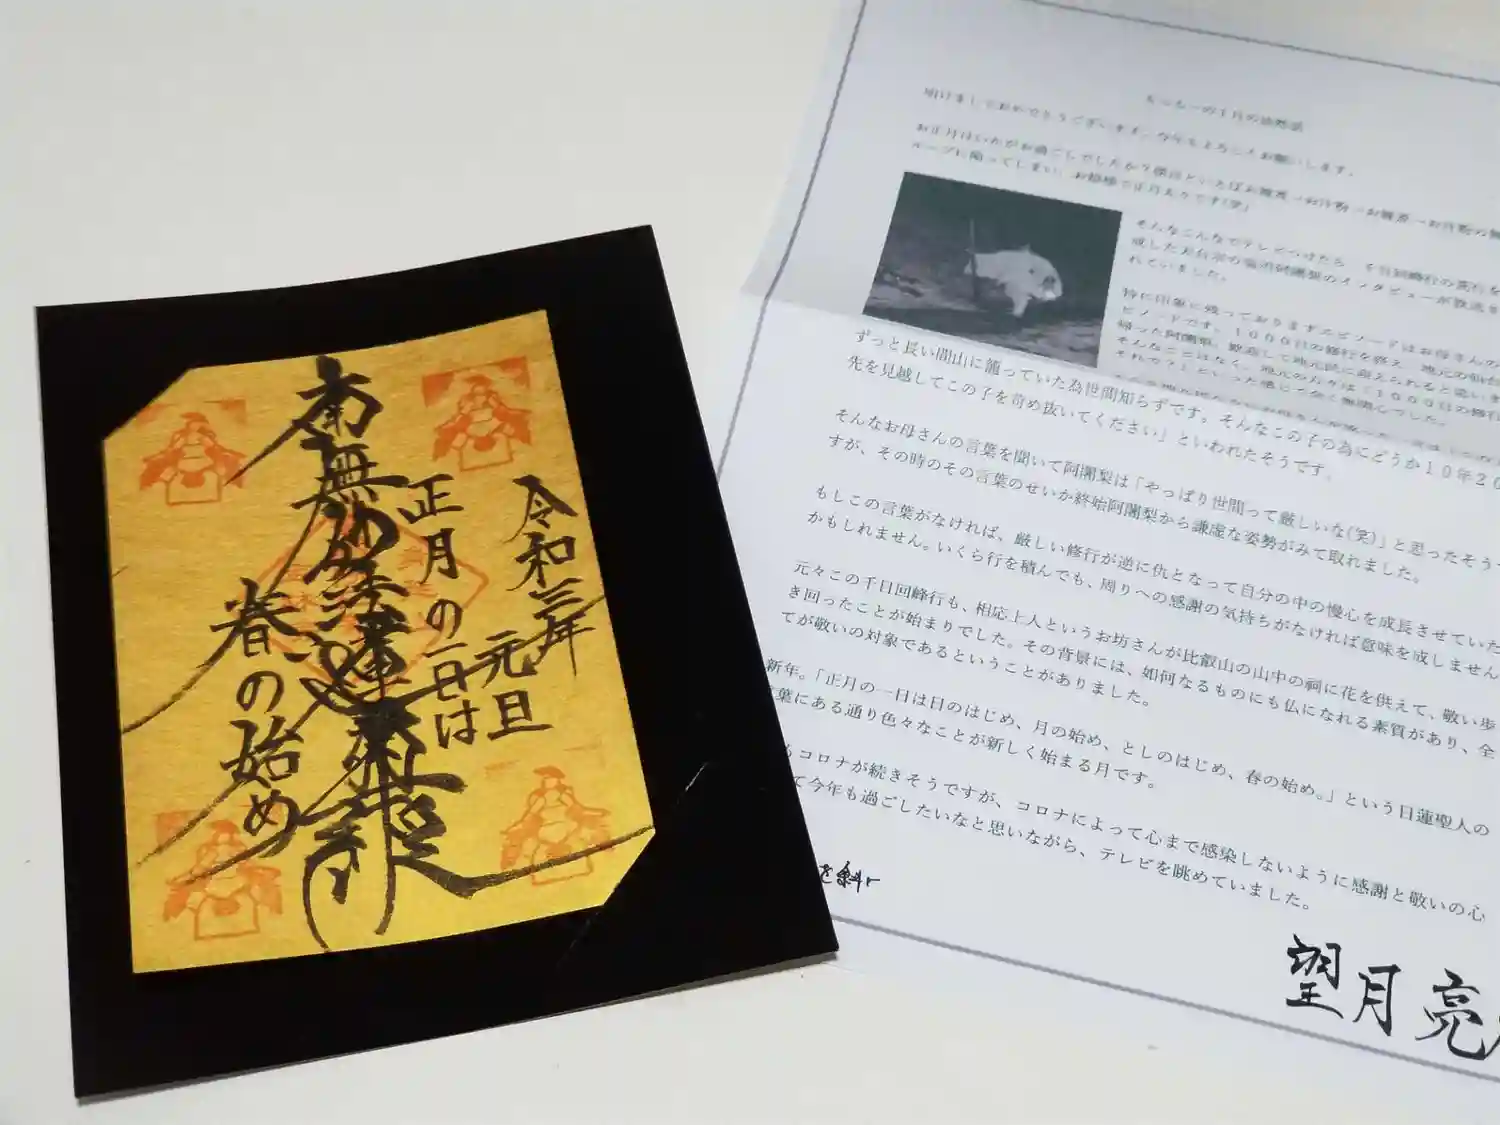 南無妙法蓮華経
令和三年
元旦
正月の一日は
春の始め
明けましておめでとうございます。今年もよろしくお願いします。
お正月はいかがお過ごしでしたか？
ループに陥ってしまい、お陰様で正月太りです(笑)
そんなこんなでテレビつけたら、千日回峰行の荒行を
成した天台宗の
れていました。
特に印象に残っておりますエピソードはお母さんの
ピソードです。１０００日の修行を終え、地元の仙台
帰った阿闍梨。歓迎して地元民に迎えられると思いき
そんなことはなく、地元の方々は「１０００日の修行
それで？」といった感じで全く無関心でした。
ずっと長い間山に籠っていた為世間知らずです。そんなこの子の為にどうか１０年２０
先を見越してこの子を苛め抜いてください」といわれたそうです。
そんなお母さんの言葉を聞いて阿闍梨は「やっぱり世間って厳しいな(笑)」と思ったそうで
すが、その時のその言葉のせいか終始阿闍梨から謙虚な姿勢がみて取れました。
もしこの言葉がなければ、厳しい修行が逆に仇となって自分の中の慢心を成長させていた
かもしれません。いくら行を積んでも、周りへの感謝の気持ちがなければ意味を成しません
元々この千日回峰行も、相応上人というお坊さんが比叡山の山中の祠に花を供えて、敬い歩
き回ったことが始まりでした。その背景には、如何なるものにも仏になれる素質があり、全
てが敬いの対象であるということがありました。
新年。「正月の一日は日のはじめ、月の始め、としのはじめ、春の始め。」という日蓮聖人の
葉にある通り色々なことが新しく始まる月です。
もコロナが続きそうですが、コロナによって心まで感染しないように感謝と敬いの心
て今年も過ごしたいなと思いながら、テレビを眺めていました。
望月亮